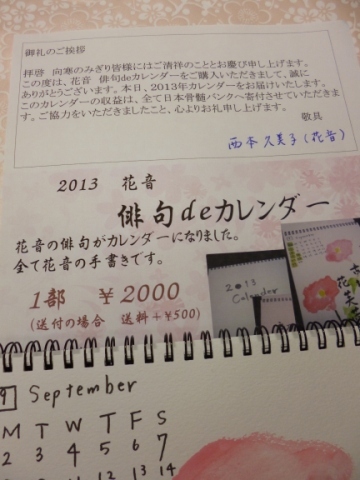 御礼のご挨拶
拝啓 向寒のみぎり皆様にはご清祥のこととお慶び申し上げます。
この度は、花音 俳句deカレンダーをご購入いただきまして、誠に
ありがとうございます。本日、2013年カレンダーをお届けいたします。
このカレンダーの収益は、全て日本骨髄バンクへ寄付させていただきま
す。ご協力をいただきましたこと、心よりお礼申し上げます。
敬具
西本久美子(花音)
2013 花音
俳句deカレンダー
花音の俳句がカレンダーになりました。
全て花音の手書きです。
1部 ¥2000
(送付の場合 送料+¥500)
2013
Calendar
9 September
M T W T F S
2 3 4 5 6 7
11 12 13 14